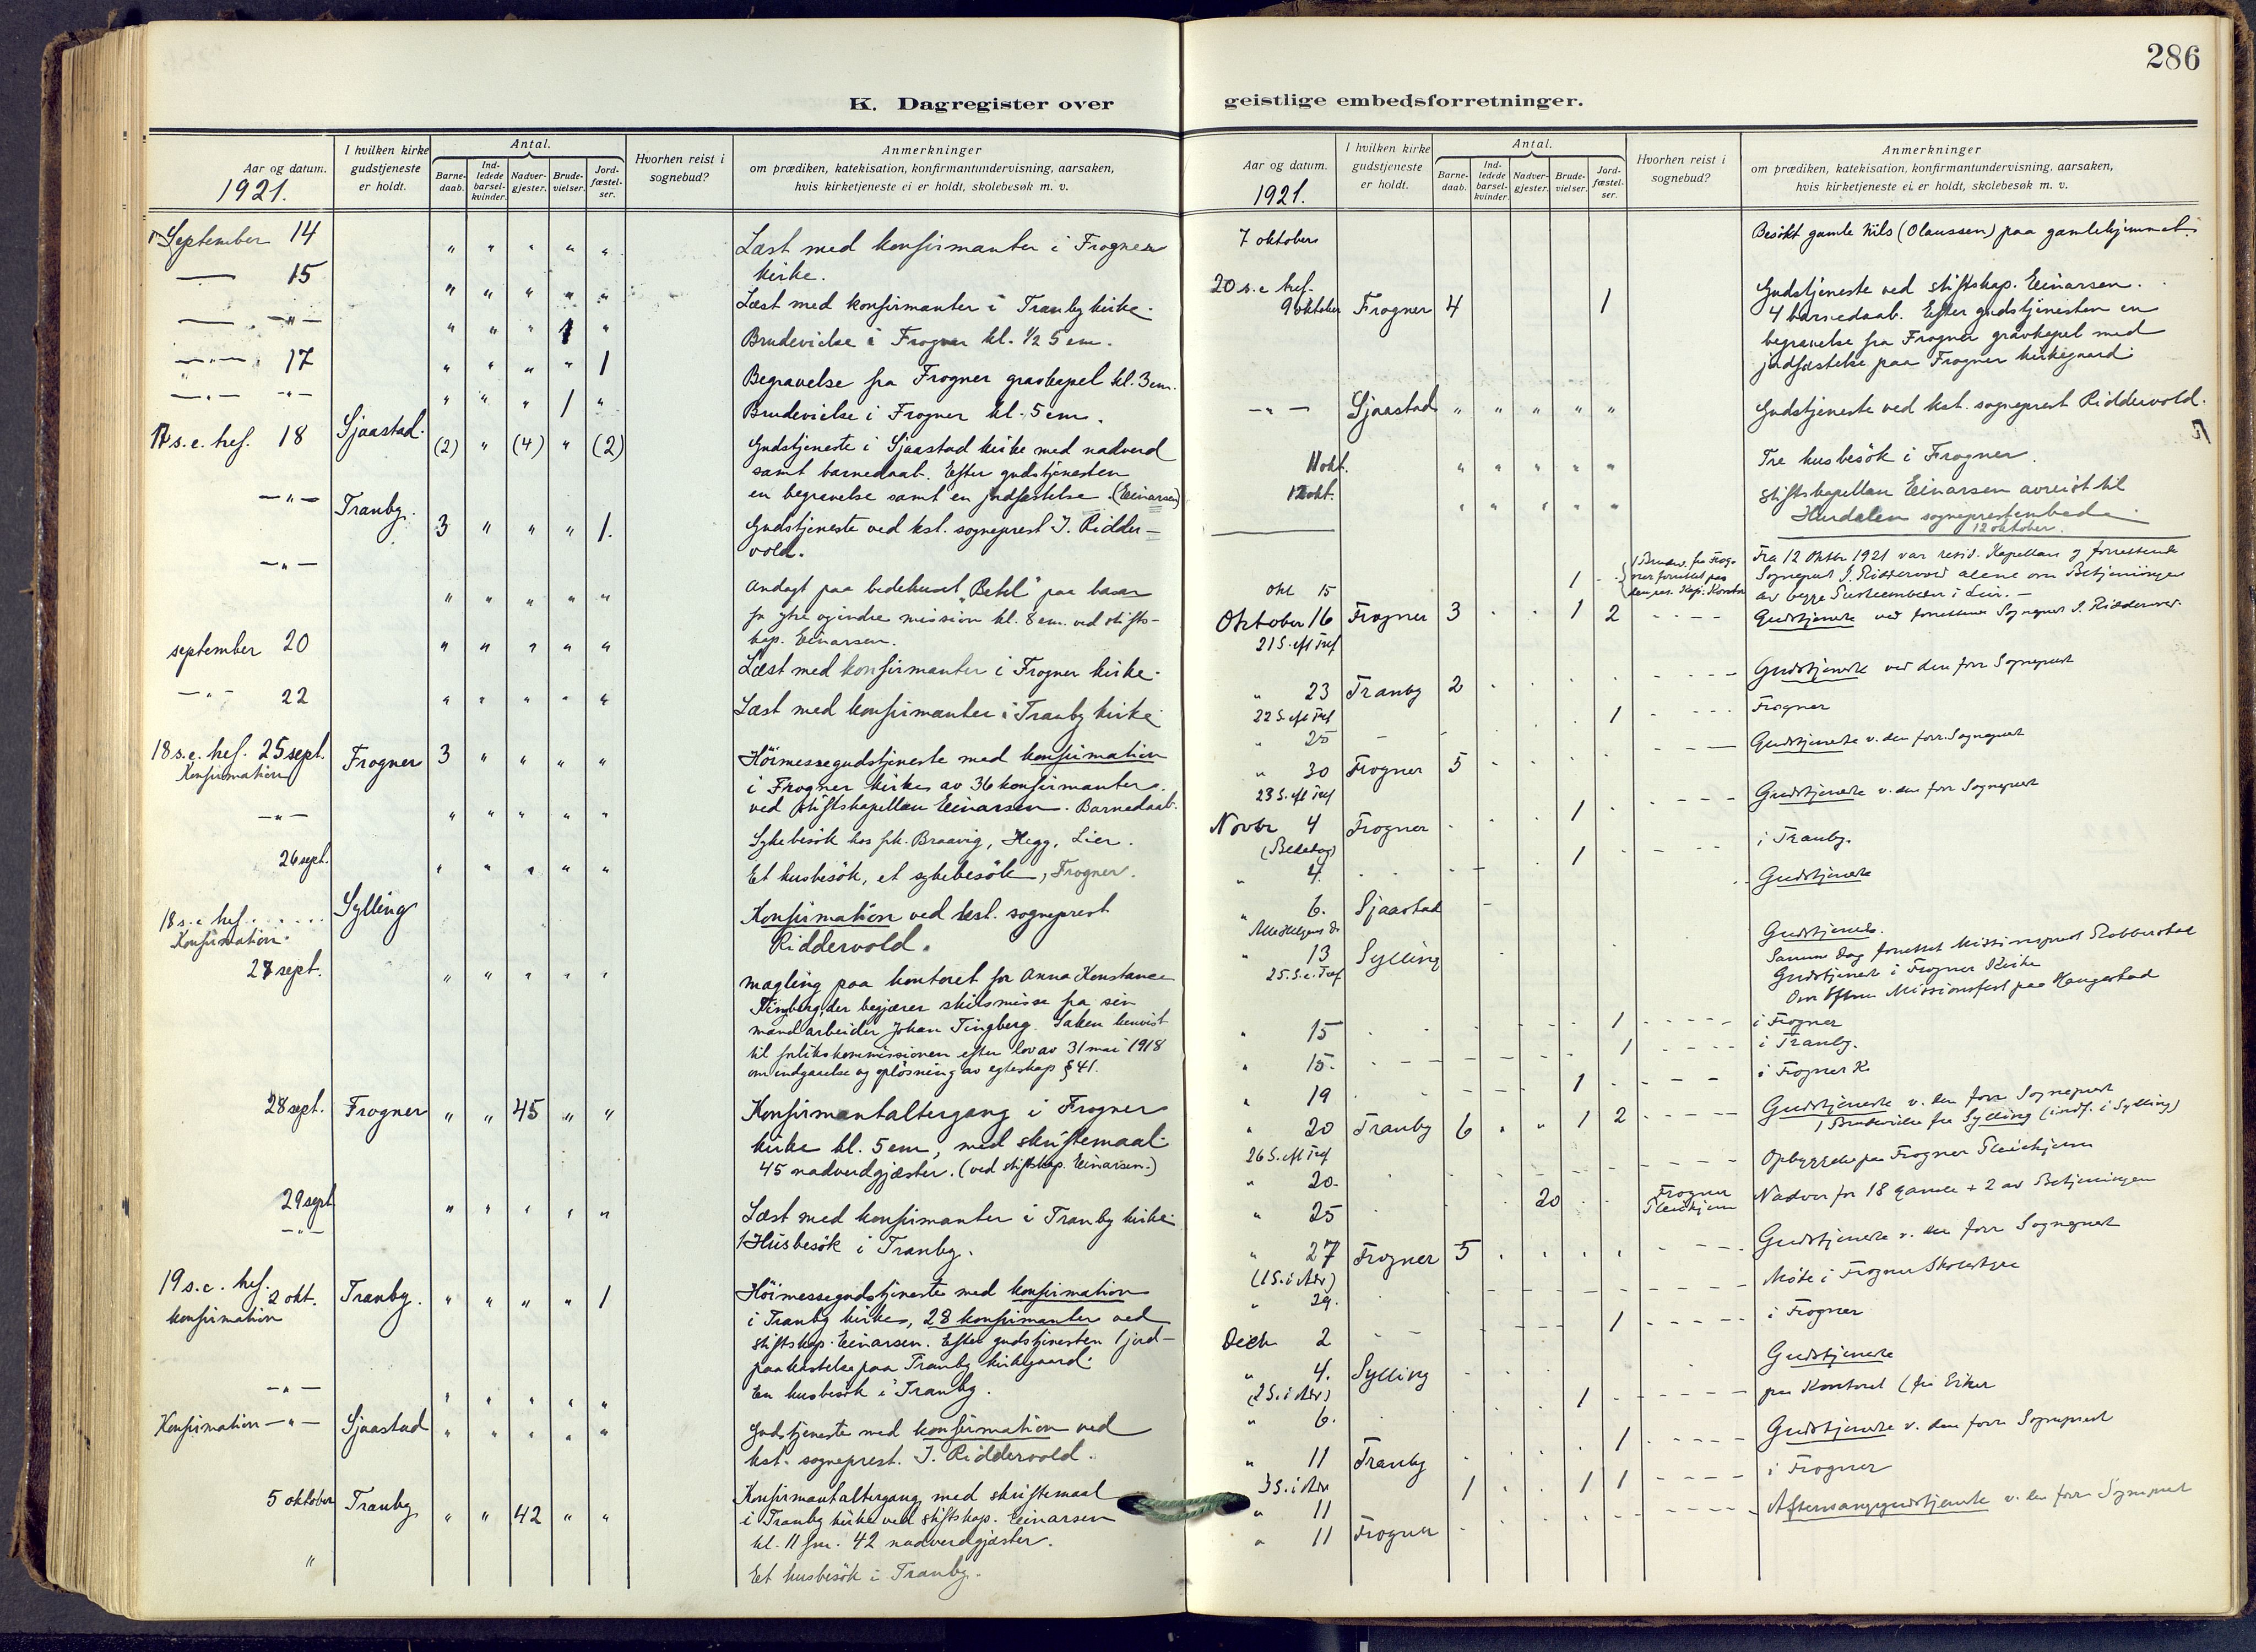 K. Dagregister over
Aar og datum.
1921.
I hvilken kirke gudstjeneste er holdt.
Antal.
Barne-daab.
Ind-ledede barsel-kvinder.
Nadver-gjester.
Brude-vielser.
Jord-fæstel-ser.
Hvorhen reist i sognebud?
Anmerkninger
om prædiken, katekisation, konfirmantundervisning, aarsaken,
hvis kirketjeneste ei er holdt, skolebesøk m. v.
September 14 " " " " " Læst med konfirmanter i Frogner
kirke.
— 15 " " " " " Læst med konfirmanter i Tranby kirke.
— " — " " " 1 " Brudevielse i Frogner kl. 1/2 5 em.
— " — 17 " " " " 1 Begravelse fra Frogner gravkapel kl. 3 em.
— " — " " " " 1 " Brudevielse i Frogner kl. 5 em.
17 s. e. tref. 18 Sjaastad. (2) " (4) " (2) Gudstjeneste i Sjaastad kirke med nadverd
samt barnedaab. Efter gudstjenesten
en begravelse samt en jordfæstelse. (Einarsen)
— " — Tranby. 3 " " " 1. Gudstjeneste ved kst. sogneprest I. Ridder-
vold.
— " — " " " " " Andagt paa bedehuset "Betel" paa basar
for ytre og indre mission kl. 8 em. ved stifts-
kap. Einarsen.
september 20 " " " " " Læst med konfirmanter i Frogner kirke.
— " — 22 " " " " " Læst med konfirmanter i Tranby kirke.
18 s. e. tref. 25 sept. Frogner 3 " " " " Höimessegudstjeneste med konfirmation
Konfirmation i Frogner kirke av 36 konfirmanter
ved stiftskapellan Einarsen. Barnedaab.
— " — " " " " " Sykebesök hos frk. Braavig, Hegg, Lier.
26 sept. " " " " " Et husbesök, et sykebesök, Frogner.
18 s. e. tref. Sylling Konfirmation ved kst. sogneprest
Konfirmation. Riddervold.
27 sept. " " " " " Mægling paa kontoret for Anna Konstance
Tingberg, der begjærer skilsmisse fra sin
mand arbeider Johan Tingberg. Saken henvist
til forlikskommissionen efter lov av 31 mai 1918
om indgaaelse og oplösning av egteskap § 41.
28 sept. Frogner " " 45 " " Konfirmantaltergang i Frogner
kirke kl. 5 em, med skriftemaal.
45 nadverdgjæster. (ved stiftskap. Einarsen.)
29 sept " " " " " Læst med konfirmanter i Tranby kirke.
— " — 1 Husbesök i Tranby.
19 s. e. tref. 2 okt. Tranby. " " " " 1 Höimessegudstjeneste med konfirmation
konfirmation i Tranby kirke, 28 konfirmanter ved
stiftskap. Einarsen. Efter gudstjenesten 1 jord-
paakastelse paa Tranby kirkegaard.
— " — " " " " " En husbesök i Tranby.
Konfirmation — " — Sjaastad " " " " " Gudstjeneste med konfirmation ved
kst. sogneprest. I. Riddervold.
5 oktober Tranby " " 42 " " Konfirmantaltergang med skriftemaal
i Tranby kirke ved stiftskap. Einarsen
kl. 11 fm. 42 nadverdgjæster.
" Et husbesök i Tranby.
286
geistlige embedsforretninger.
Aar og datum.
1921.
I hvilken kirke gudstjeneste er holdt.
Antal.
Barne-daab.
Ind-ledede barsel-kvinder.
Nadver-gjester.
Brude-vielser.
Jord-fæstel-ser.
Hvorhen reist i sognebud?
Anmerkninger
om prædiken, katekisation, konfirmantundervisning, aarsaken,
hvis kirketjeneste ei er holdt, skolebesøk m. v.
7 oktober Besökt gamle Nils (Olaussen) paa gamlehjemmet.
20 s. e tref. Gudstjeneste ved stiftskap. Einarsen.
9 oktober Frogner 4 1 4 barnedaab. Efter gudstjenesten en
begravelse fra Frogner gravkapel med
jordfæstelse paa Frogner kirkegaard.
— " — Sjaastad " " " " " Gudstjeneste ved kst. sogneprest Riddervold.
11 okt. " " " " " Tre husbesök i Frogner.
12 okt. " " " " " Stiftskapellan Einarsen avreist til
Hurdalen sogneprestembede
12 oktober.
Fra 12 Oktbr 1921 var resid. Kapellan og forrettende
okt 15 1 Sogneprest I. Riddervold alene om Betjeningen
av begge i Lier. —
Oktober 16 Frogner 3 1 2 Gudstjeneste ved forrettende Sogneprest I. Riddervold.
21 S. eft Tref
" 23 Tranby 2 Gudstjeneste ved den forr Sogneprest
22 S. eft Tref
" 25 1 Frogner
" 30 Frogner 5 Gudstjeneste v. den forr. Sogneprest
23 S. eft Tref
Novbr 4 Frogner 1 Gudstjeneste v. den forr Sogneprest
(Bededag)
" 4. 1 i Tranby.
" 6. Sjaastad Gudstjeneste
Alle Helgens D.
" 13 Sylling Gudstjeneste.
25. S. e. Tref Samme Dag forrettet Missionsprest
Gudstjenest i Frogner Kirke
Om Eftm Missionsfest paa Haugestad
" 15 1 i Frogner
" 15. 1 i Tranby.
" 19 1 i Frogner K.
" 20 Tranby 6 1 2 Gudstjeneste v. den forr Sogneprest
26 S. eft Tref 1 Brudevielse fra Sylling (indf. i Sylling)
" 20. Opbyggelse paa Frogner Pleiehjem
" 25 20 Frogner Pleiehjem Nadver for 18 gamle + 2 av Betjeningen
" 27 Frogner 5 Gudstjeneste v. den forr Sogneprest
(1 S. i Adv)
" 29. Möte i Frogner
Decb 2 1 i Frogner
" 4. Sylling Gudstjeneste
(2 S. i Adv)
" 6. 1 paa Kontoret (fra Eiker
" 11 Tranby 1 Gudstjeneste v. den forr Sogneprest
3 S. i Adv
" 11 1 1 1 i Frogner
" 11 Frogner Aftensangsgudstjeneste v. den forr Sogneprest